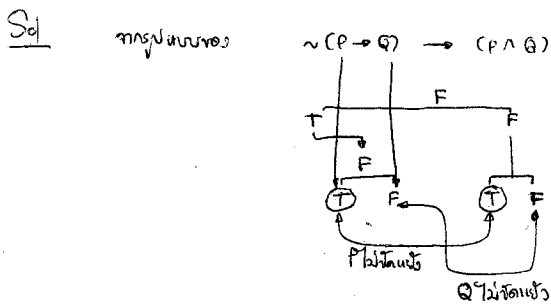 Sol จากรูปแบบของ ~(P → Q) → (P ∧ Q)
F
T F
F
T F T F
P ไม่ขัดแย้ง
Q ไม่ขัดแย้ง